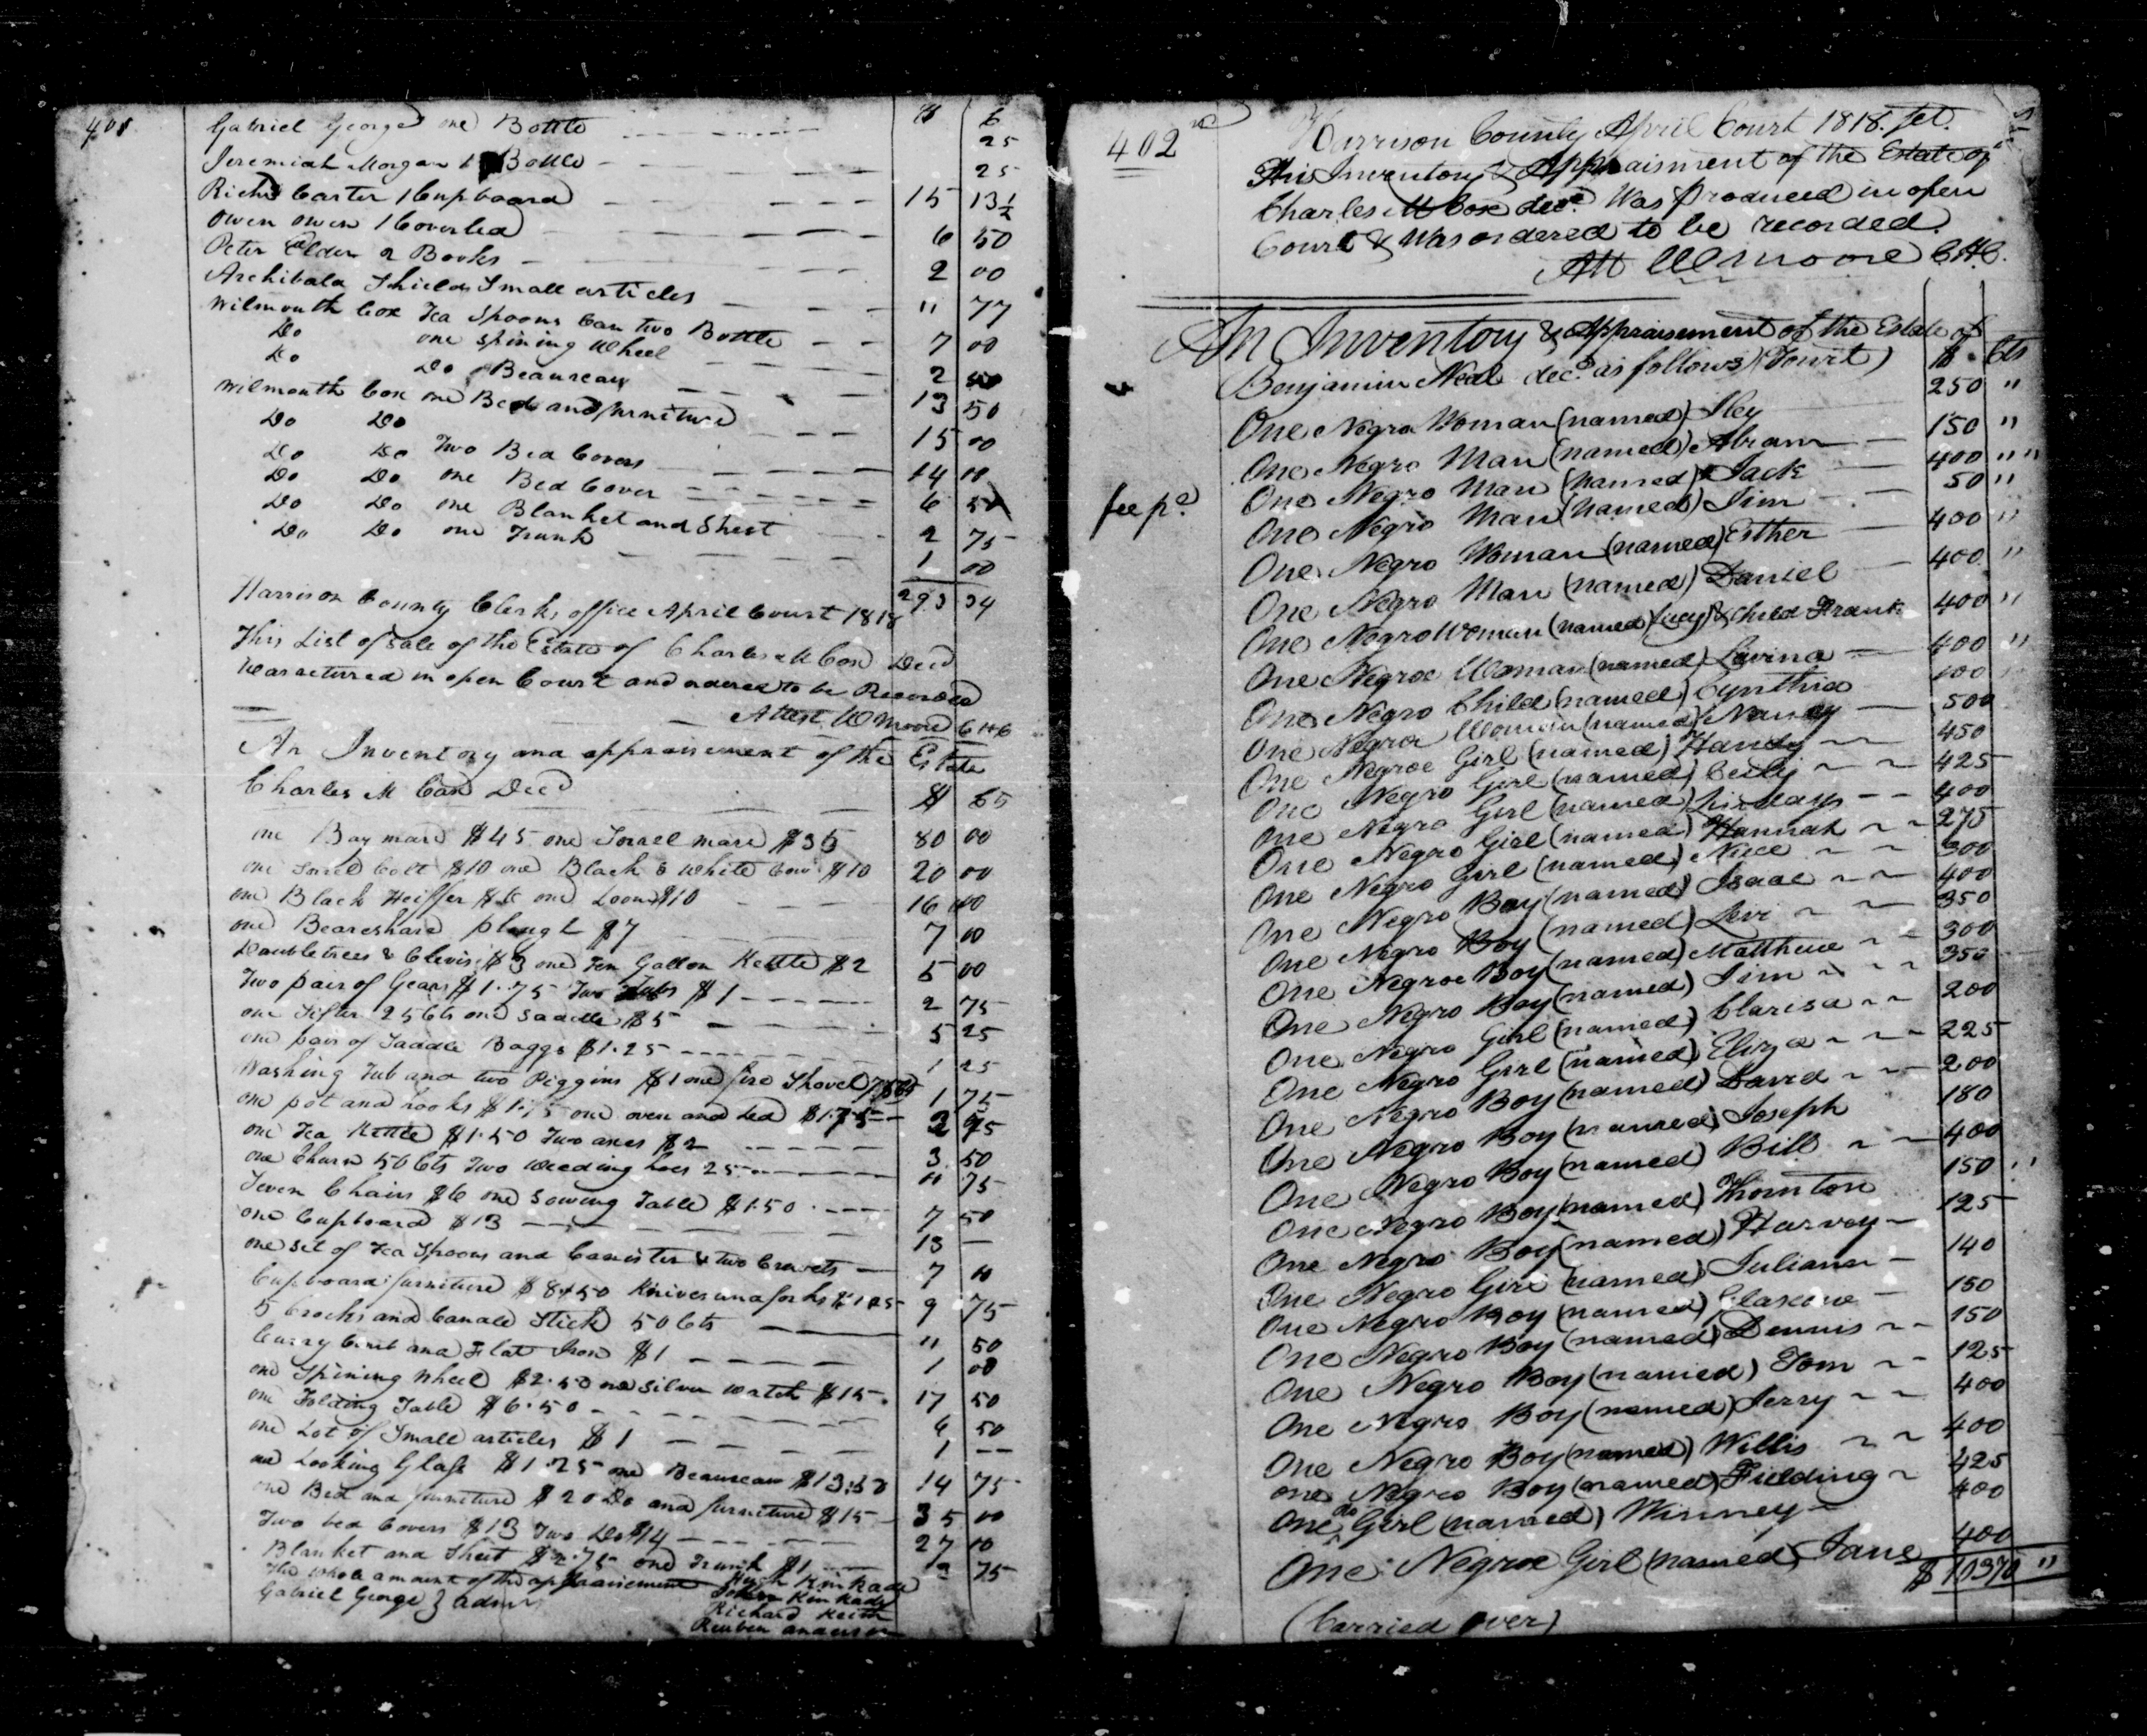 401
$ C
Gabriel George one Bottle 25
Jeremiah Morgan 1 Bottle 25
Richd Carter 1 Cupboard 15 13½
Owen Owen 1 Coverled 6 50
Peter Elder 2 Books 2 00
Archibald Shields Small articles " 77
Wilmouth Cox Tea Spoons Can two Bottle 7 00
Do one Spining Wheel 2
Do Do Beaureau 13 50
Wilmouth Cox one Bed and furniture 15 00
Do Do Two Bed Covers 14 00
Do Do one Bed Cover 6 50
Do Do one Blanket and Sheet 2 75
Do Do one Trunk 1 00
293 34
Harrison County Clerks office April Court 1818
This List of Sale of the Estate of Charles M Cox Decd
Was returned in open Court and ordered to be Recorded
Attest W Moore CHC
An Inventory and appraisement of the Estate
Charles M Cox Decd $
one Bay mare $45 one Sorrel mare $35 80 00
one Sorrel Colt $10 one Black & White Cow $10 20 00
one Black Heiffer $6 one Loom $10 16 00
one Beareshare plough $7 7 00
Doubletrees & Clevis $3 one Ten Gallon Kettle $2 5 00
Two pair of Gears $1.75 Two Tubs $1 2 75
one Sifter 25 Cts one Saddle $5 5 25
one pair of Saddle Baggs $1.25 1 25
Washing Tub and two Piggins $1 one fire Shovel 75 Cts 1 75
one pot and hooks one oven and Led
one Tea Kettle $1.50 Two axes $2 3 50
one Churn 50 Cts Two Weeding hoes 25 " 75
Seven Chairs $6 one Sowing Table $1.50 7 50
one Cupboard $13 13 —
one set of Tea Spoons and Canister & two Cruvets 7 00
Cupboard furniture $8.50 Knives and forks $1.25 9 75
5 Crocks and Candle Stick 50 Cts " 50
Curry Comb and Flat Iron $1 1 00
one Spining Wheel $2.50 one Silver Watch $15 17 50
one Folding Table $6.50 6 50
one Lot of Small articles $1 1 —
one Looking Glass $1.25 one Beaureau $13.50 14 75
one Bed and furniture $20 Do and furniture $15 35 00
Two bed Covers $13 Two Do $14 27 00
Blanket and Sheet $2.75 one Trunk $1 3 75
The whole amount of the appraisement Hugh Kinkade
Gabriel George } admr John Kinkade
Richard Keith
Reuben Anderson
402
Harrison County April Court 1818. Sct.
This Inventory & Appraisment of the Estate of
Charles M Cox decd. Was produced in open
Court & Was ordered to be recorded.
Att W Moore C.H.C.
An Inventory & Appraisement of the Estate of
Benjamin Neal decd. as follows (Towit) $ Cts
One Negro Woman (named) Iley 250 "
One Negro Man (named) Abram 150 "
fee pd. One Negro Man (named) Jack 400 "
One Negro Man (named) Jim 50 "
One Negro Woman (named) Esther 400 "
One Negro Man (named) Daniel 400 "
One Negro Woman (named) Lucy & Child Frank 400 "
One Negroe Woman (named) Lavina 400 "
One Negro Child (named) Cynthia 100
One Negroe Woman (named) Nancy 500
One Negroe Girl (named) Handy 450
One Negro Girl (named) Cecily 425
One Negro Girl (named) Lindays 400
One Negro Girl (named) Hannah 275
One Negro Girl (named) Nice 300
One Negro Boy (named) Isaac 400
One Negro Boy (named) Levi 350
One Negroe Boy (named) Matthew 300
One Negro Boy (named) Jim 350
One Negro Girl (named) Clarisa 200
One Negro Girl (named) Eliza 225
One Negro Boy (named) David 200
One Negro Boy (named) Joseph 180
One Negro Boy (named) Bill 400
One Negro Boy (named) Thornton 150
One Negro Boy (named) Harvey 125
One Negro Girl (named) Juliann 140
One Negro Boy (named) Glascow 150
One Negro Boy (named) Dennis 150
One Negro Boy (named) Tom 125
One Negro Boy (named) Jerry 400
One Negro Boy (named) Willis 400
One Negro Boy (named) Fielding 425
One do Girl (named) Winney 400
One Negroe Girl (named) Jane 400
$10370 "
(Carried over)